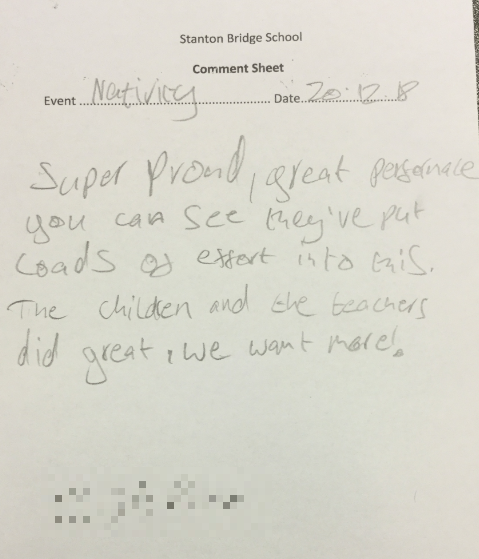 Stanton Bridge School
Comment Sheet
Event Nativity Date 20.12.18
Super Proud, great performace
you can see they've put
Loads of effort into this.
The children and the teachers
did great, we want more!